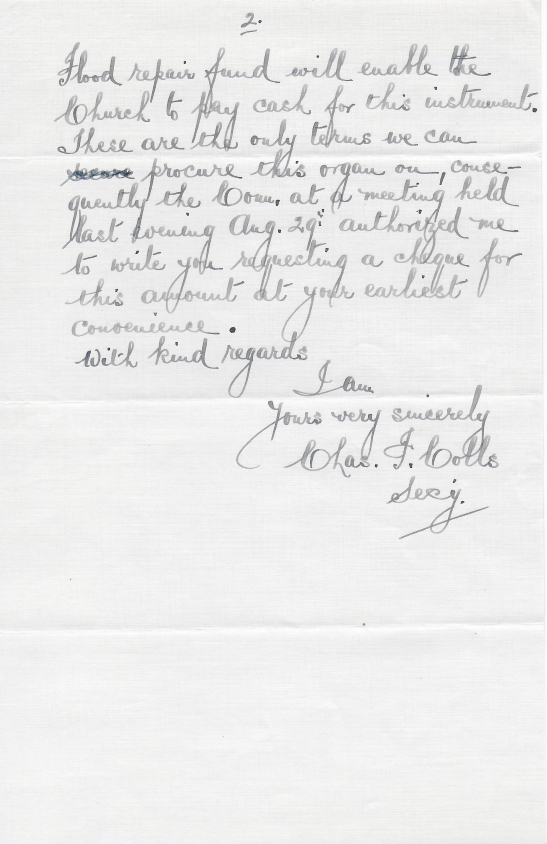 2.
Flood repair fund will enable the
Church to pay cash for this instrument.
These are the only terms we can
secure procure this organ on, conse-
quently the Com. at a meeting held
last evening Aug. 29th authorized me
to write you requesting a cheque for
this amount at your earliest
convenience.
With kind regards
I am
Yours very sincerely
Chas. F. Colls
Secy.